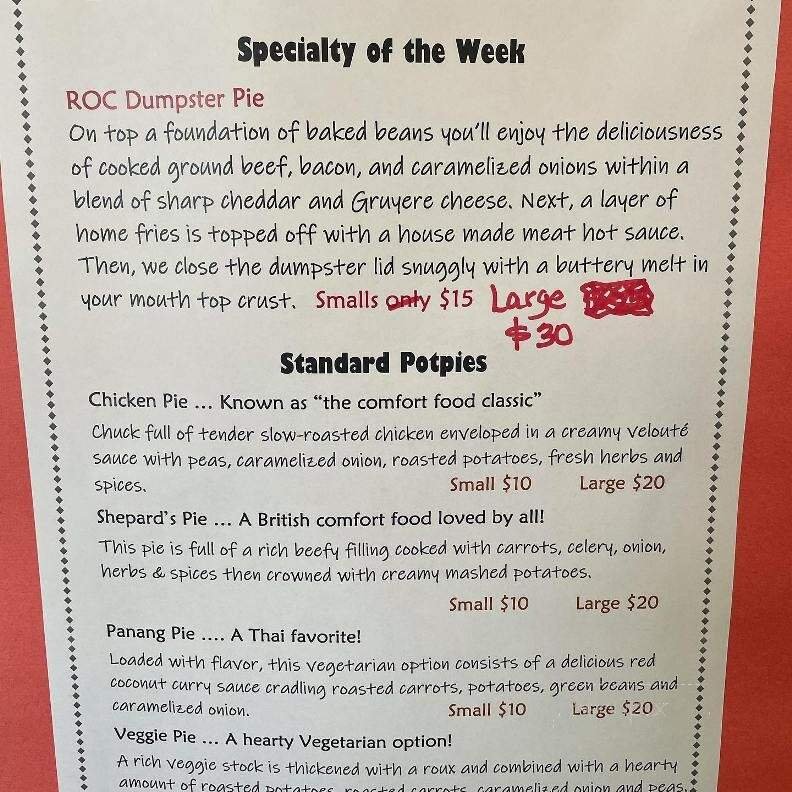 Specialty of the Week
ROC Dumpster Pie
On top a foundation of baked beans you'll enjoy the deliciousness
of cooked ground beef, bacon, and caramelized onions within a
blend of sharp cheddar and Gruyere cheese. Next, a layer of
home fries is topped off with a house made meat hot sauce.
Then, we close the dumpster lid snuggly with a buttery melt in
your mouth top crust. Smalls only $15 Large
$30
Standard Potpies
Chicken Pie ... Known as "the comfort food classic"
Chuck full of tender slow-roasted chicken enveloped in a creamy velouté
sauce with peas, caramelized onion, roasted potatoes, fresh herbs and
spices. Small $10 Large $20
Shepard's Pie ... A British comfort food loved by all!
This pie is full of a rich beefy filling cooked with carrots, celery, onion,
herbs & spices then crowned with creamy mashed potatoes.
Small $10 Large $20
Panang Pie .... A Thai favorite!
Loaded with flavor, this vegetarian option consists of a delicious red
coconut curry sauce cradling roasted carrots, potatoes, green beans and
caramelized onion. Small $10 Large $20
Veggie Pie ... A hearty Vegetarian option!
A rich veggie stock is thickened with a roux and combined with a hearty
amount of roasted potatoes, roasted carrots, caramelized onion and peas.